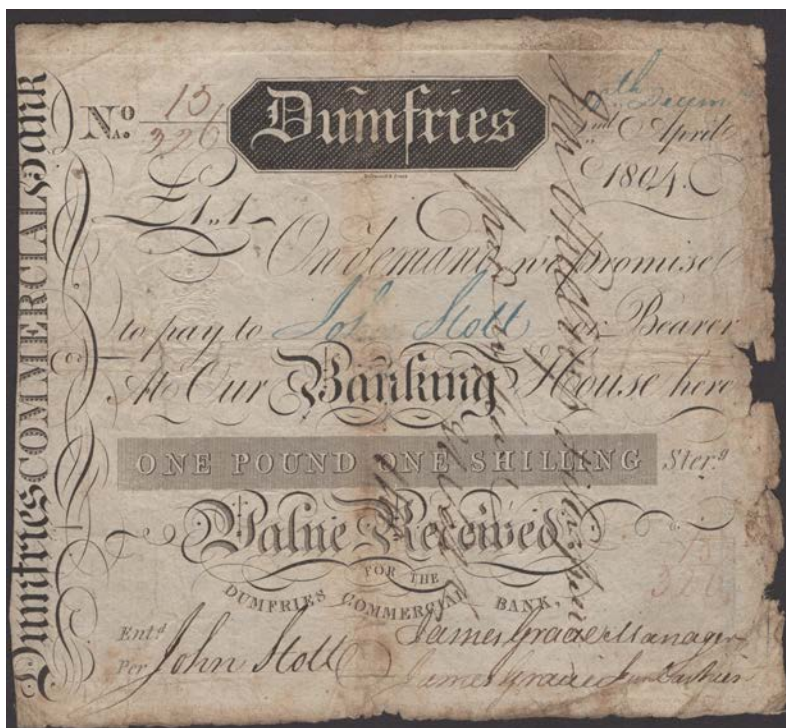 Dumfries COMMERCIAL Bank
No. 13/326
Dumfries
April
1804.
£1,,1
On demand we promise
to pay to John Stott or Bearer
At Our Banking House here
ONE POUND ONE SHILLING Sterg
Value Received
FOR THE
DUMFRIES COMMERCIAL BANK,
Entd James Gracie Manager
Per John Stott James Gracie Junr Cashier